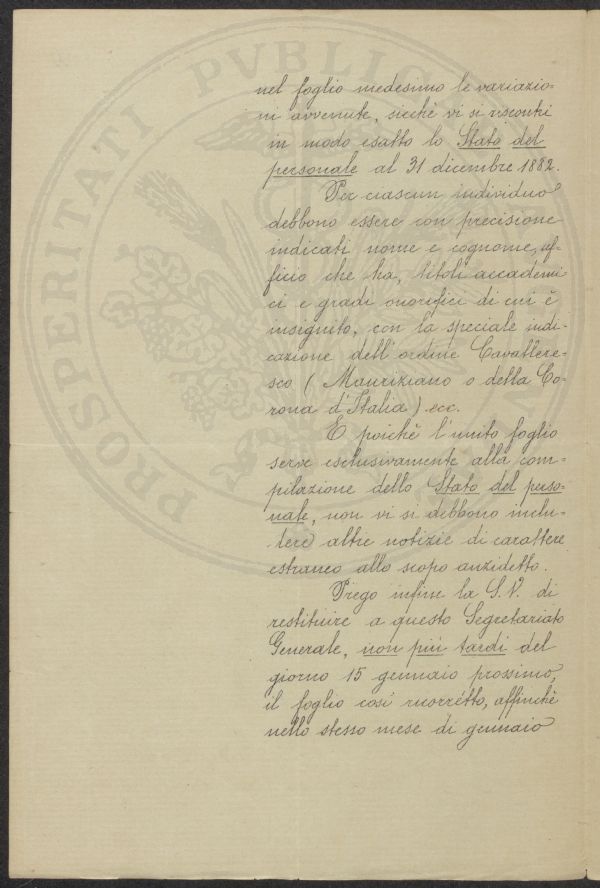 nel foglio medesimo le variazio=
ni avvenute, sicchè vi si riscontri
in modo esatto lo Stato del
personale al 31 dicembre 1882.
Per ciascun individuo
debbono essere con precisione
indicati nome e cognome, uf=
ficio che ha, titoli accademi
ci e gradi onorifici di cui è
insignito, con la speciale indi=
cazione dell'ordine Cavallere=
sco (Mauriziano o della Co=
rona d'Italia) ecc.
E poichè l'unito foglio
serve esclusivamente alla com=
pilazione dello Stato del perso=
nale, non vi si debbono inclu=
dere altre notizie di carattere
estraneo allo scopo anzidetto.
Prego infine la S. V. di
restituire a questo Segretariato
Generale, non più tardi del
giorno 15 gennaio prossimo,
il foglio così ricorretto, affinchè
nello stesso mese di gennaio
PROSPERITATI PVBLIC